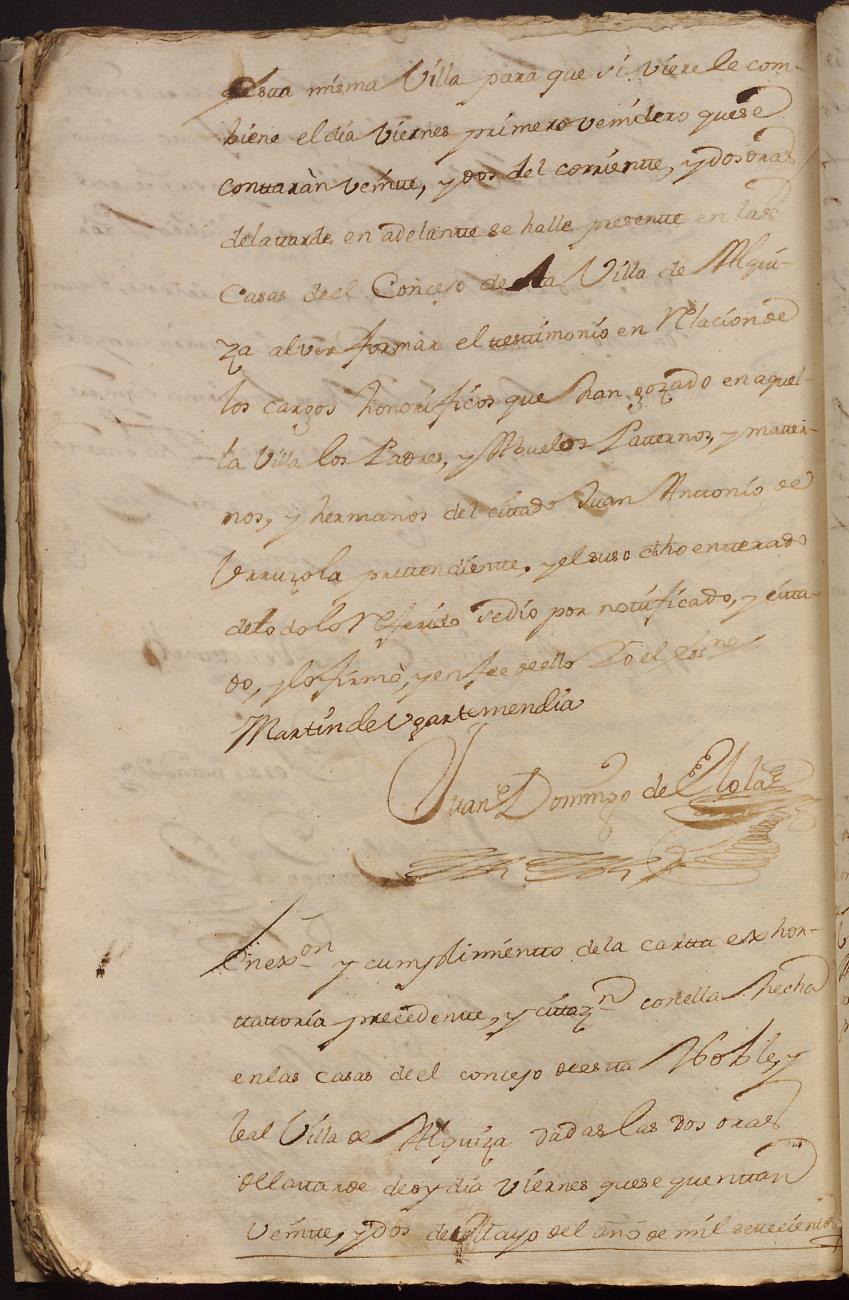 desta misma Villa para que si viere le com-
biene el dia Viernes primero venidero que se
conttaràn veintte, y dos del corriente, y dos oras
de la ttarde en adelantte se halle presentte en las
Casas de el Concejo de la Villa de Alqui-
za al ver formar el testtimonio en Relacion de
los cargos honorificos que han gozado en aquel-
la Villa los Padres, y Abuelos Patternos, y matter-
nos, y hermanos del cittado Juan Anttonio de
Urruzola prettendientte, y el suso dho entterado
de todo lo Referido se dio por nottificado, y citta-
do, y lo firmò, y en fee de ello Yo el essno
Martin de Ugartemendia
Juan Domingo de Elola
En exon y cumplimientto de la cartta exhor-
ttattoria precedentte, y cittazn con ella hecha
en las casas de el concejo de estta Noble, y
leal Villa de Alquiza dadas las dos oras
de la ttarde de oy dia Viernes que se quenttan
veintte, y dos de Mayo del año de mil settecientos